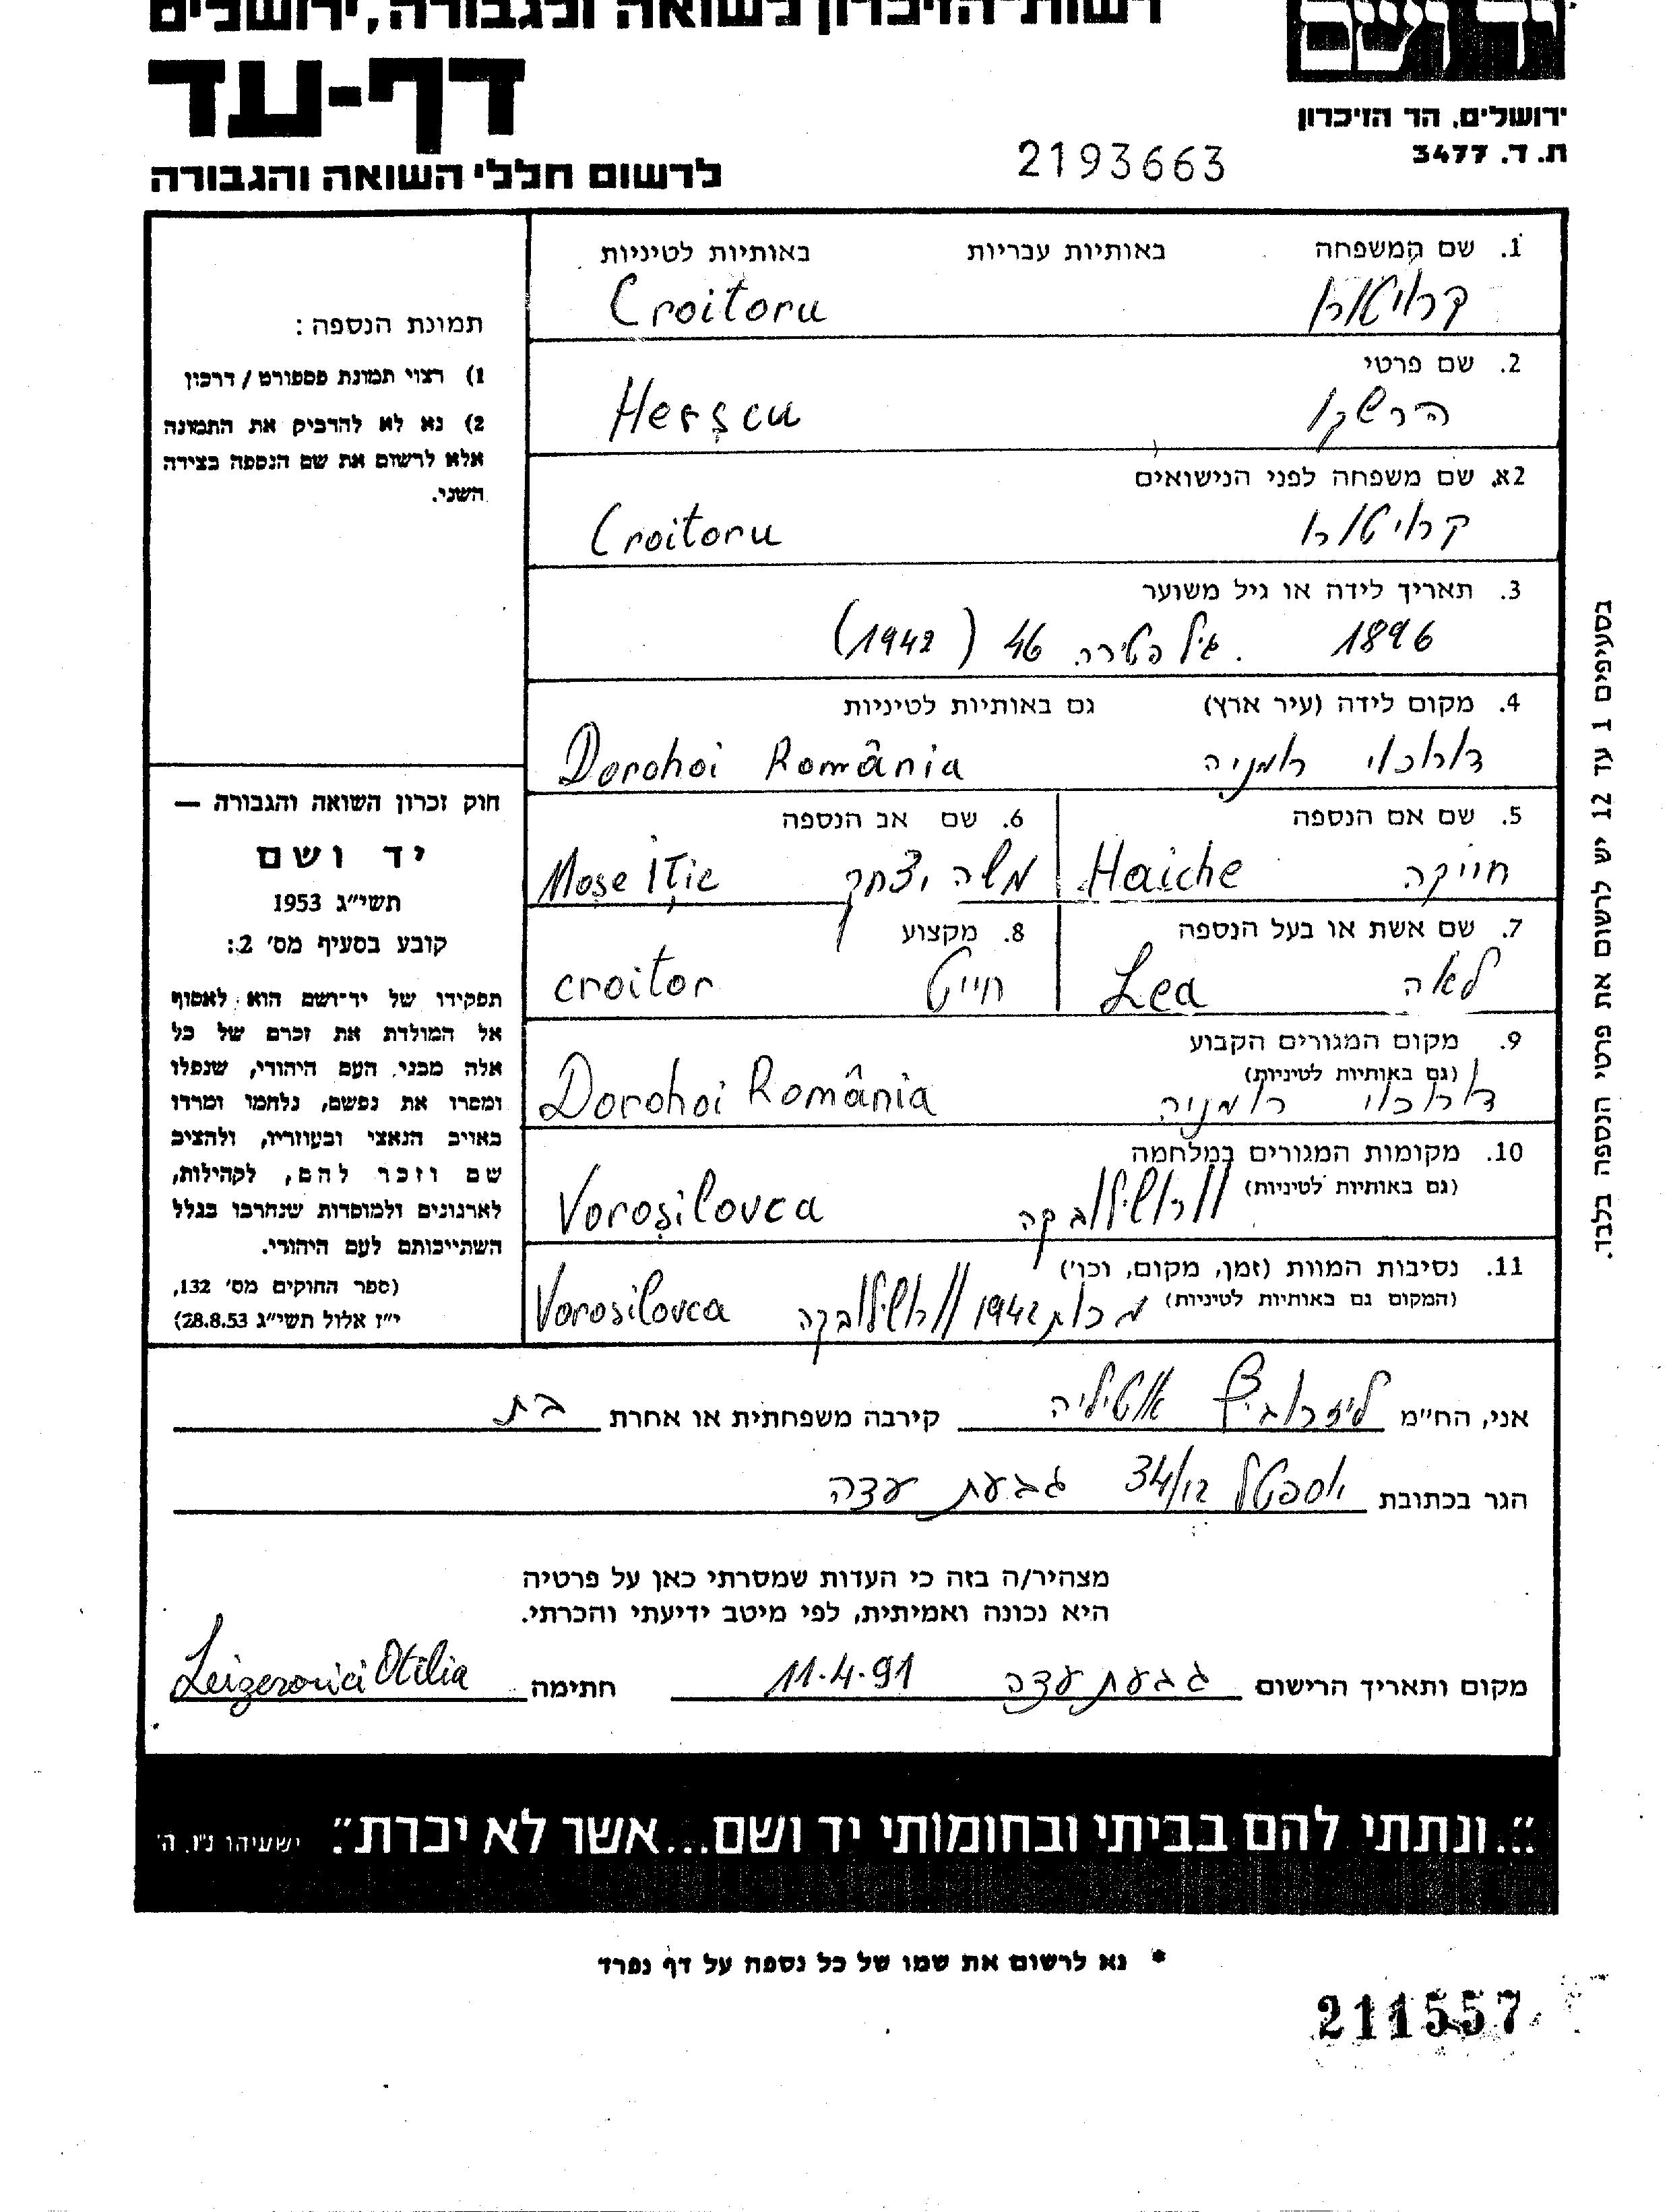 רשות-הזיכרון לשואה ולגבורה, ירושלים
דף-עד
לרשום חללי השואה והגבורה
יד ושם
ירושלים, הר הזיכרון
ת. ד. 3477
2193663
1. שם המשפחה באותיות עבריות באותיות לטיניות
קרויטורו Croitoru
2. שם פרטי
הרשקו Herşcu
2א. שם משפחה לפני הנישואים
קרויטורו Croitoru
3. תאריך לידה או גיל משוער
1896 גיל פטירה 46 (1942)
4. מקום לידה (עיר ארץ) גם באותיות לטיניות
דורוכוי רומניה Dorohoi România
5. שם אם הנספה
חייקה Haiche
6. שם אב הנספה
משה יצחק Moşe Iţic
7. שם אשת או בעל הנספה
לאה Lea
8. מקצוע
חייט croitor
9. מקום המגורים הקבוע
(גם באותיות לטיניות)
דורוכוי רומניה Dorohoi România
10. מקומות המגורים במלחמה
(גם באותיות לטיניות)
וורושילובקה Voroşilovca
11. נסיבות המוות (זמן, מקום, וכו')
(המקום גם באותיות לטיניות)
מכות 1942 וורושילובקה Vorosilovca
תמונת הנספה:
1) רצוי תמונת פספורט / דרכון
2) נא לא להדביק את התמונה
אלא לרשום את שם הנספה בצידה
השני.
חוק זכרון השואה והגבורה —
יד ושם
תשי"ג 1953
קובע בסעיף מס' 2:
תפקידו של יד-ושם הוא לאסוף
אל המולדת את זכרם של כל
אלה מבני העם היהודי, שנפלו
ומסרו את נפשם, נלחמו ומרדו
באויב הנאצי ובעוזריו, ולהציב
שם וזכר להם, לקהילות,
לארגונים ולמוסדות שנחרבו בגלל
השתייכותם לעם היהודי.
(ספר החוקים מס' 132,
י"ז אלול תשי"ג 28.8.53)
בסעיפים 1 עד 12 יש לרשום את פרטי הנספה בלבד.
אני, הח"מ לייזרוביץ אוטיליה קירבה משפחתית או אחרת בת
הגר בכתובת 34/12 גבעת עדה
מצהיר/ה בזה כי העדות שמסרתי כאן על פרטיה
היא נכונה ואמיתית, לפי מיטב ידיעתי והכרתי.
מקום ותאריך הרישום גבעת עדה 11.4.91 חתימה Leizerovici Otilia
"..ונתתי להם בביתי ובחומותי יד ושם...אשר לא יכרת". ישעיהו נ"ו, ה'
* נא לרשום את שמו של כל נספה על דף נפרד
211557